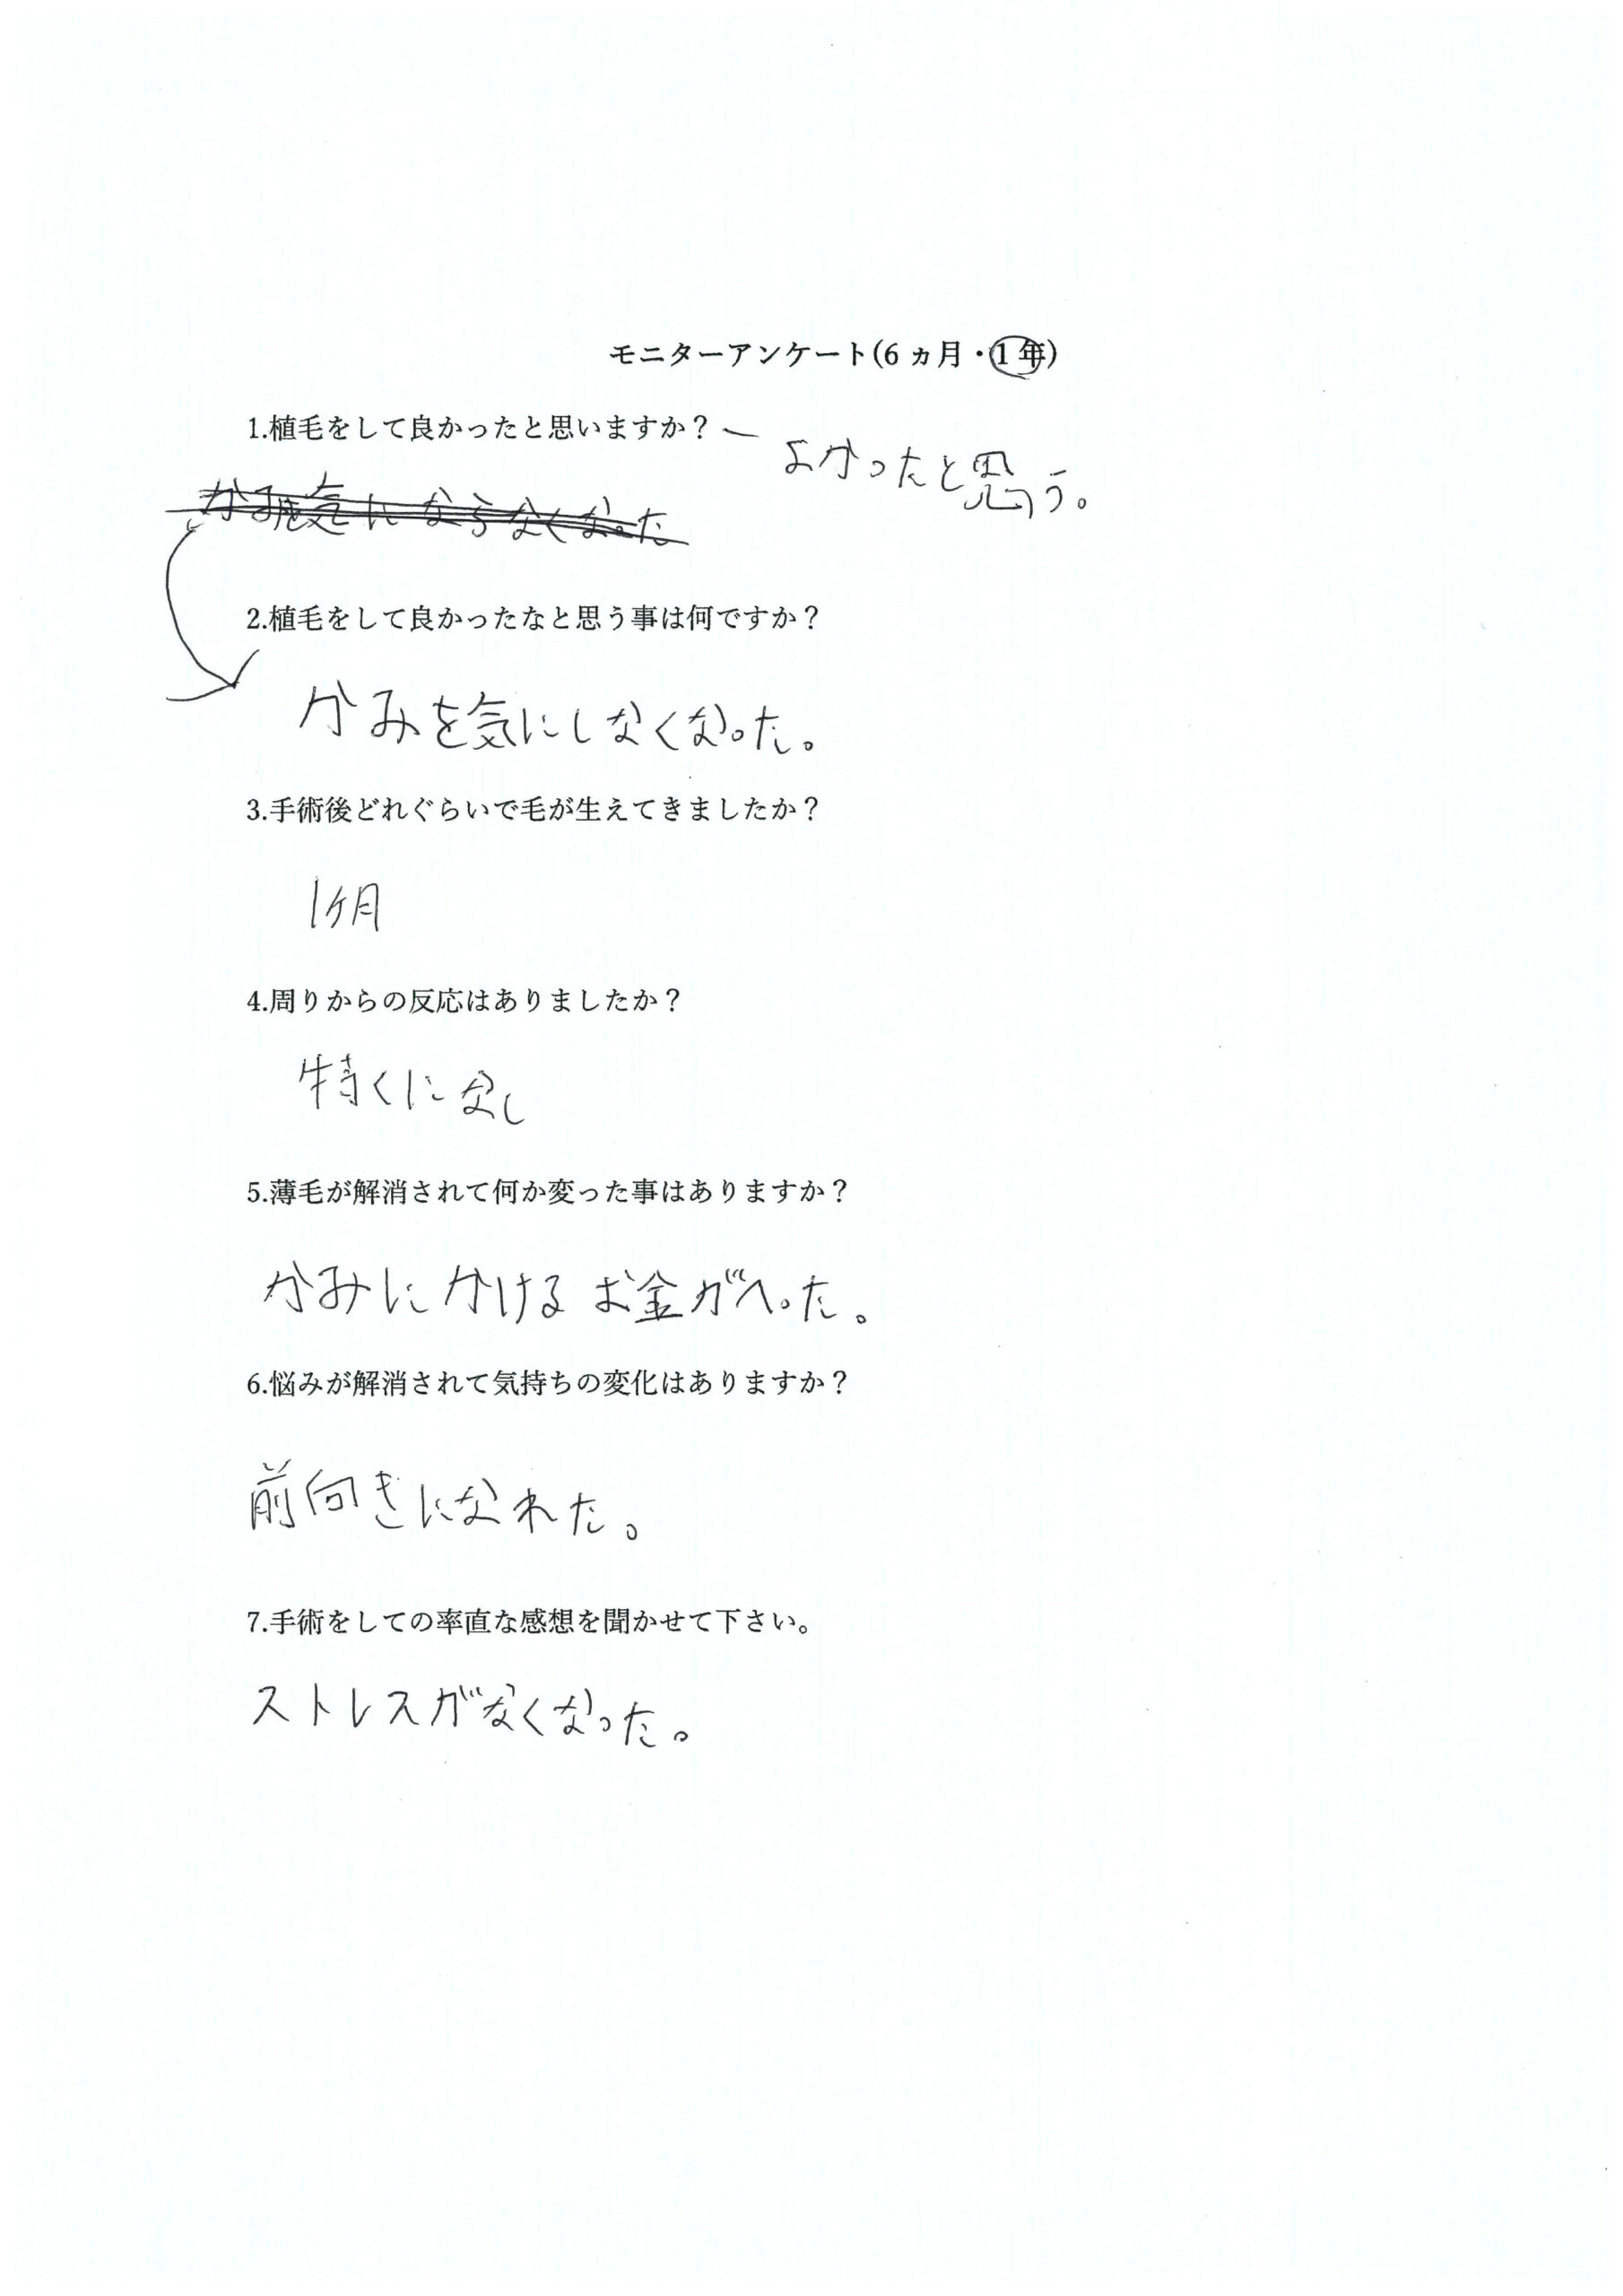 モニターアンケート(6ヵ月・1年)
1.植毛をして良かったと思いますか?
よかったと思う。
かみを気にならなくなった
2.植毛をして良かったなと思う事は何ですか?
かみを気にしなくなった。
3.手術後どれぐらいで毛が生えてきましたか?
1ヶ月
4.周りからの反応はありましたか?
特くになし
5.薄毛が解消されて何か変った事はありますか?
かみにかけるお金がへった。
6.悩みが解消されて気持ちの変化はありますか?
前向きになれた。
7.手術をしての率直な感想を聞かせて下さい。
ストレスがなくなった。